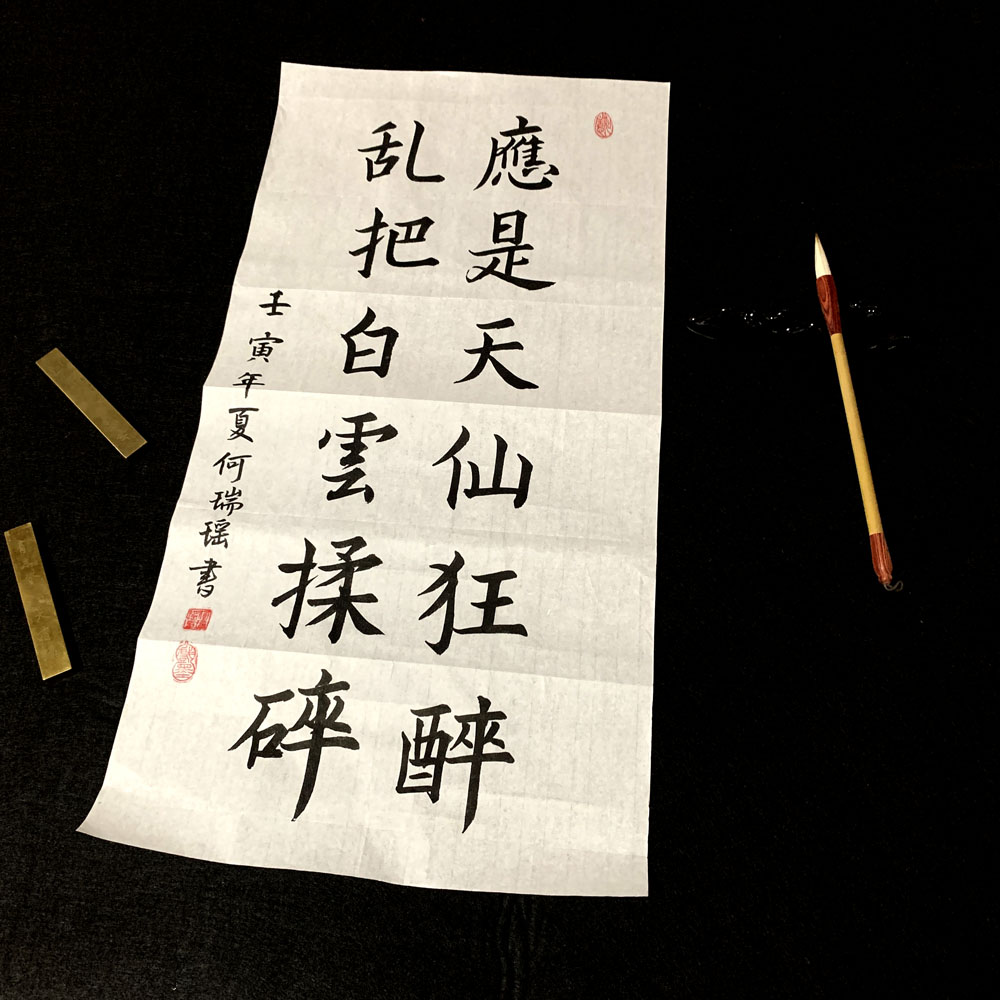 應是天仙狂醉
乱把白雲揉碎
壬寅年夏何瑞瑶書